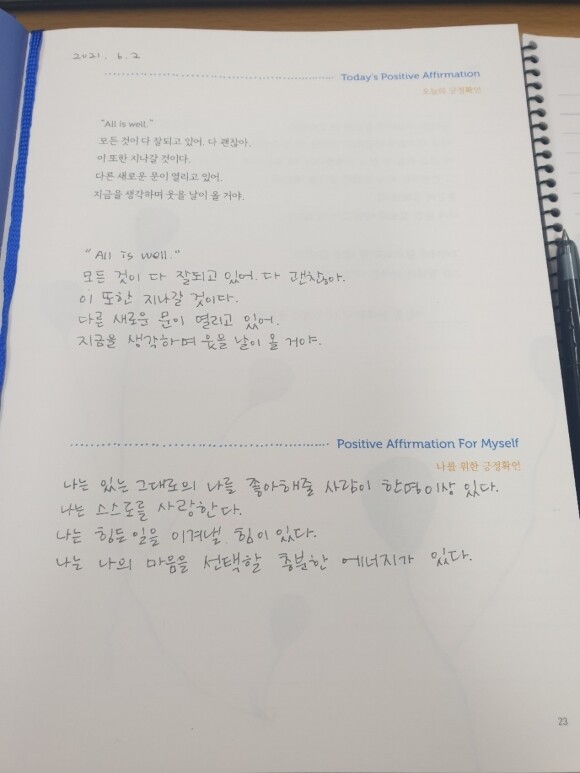 2021. 6. 2
Today's Positive Affirmation
오늘의 긍정확언
"All is well."
모든 것이 다 잘되고 있어. 다 괜찮아.
이 또한 지나갈 것이다.
다른 새로운 문이 열리고 있어.
지금을 생각하며 웃을 날이 올 거야.
"All is well."
모든 것이 다 잘되고 있어. 다 괜찮아.
이 또한 지나갈 것이다.
다른 새로운 문이 열리고 있어.
지금을 생각하며 웃을 날이 올 거야.
Positive Affirmation For Myself
나를 위한 긍정확언
나는 있는 그대로의 나를 좋아해줄 사람이 한명이상 있다.
나는 스스로를 사랑한다.
나는 힘든 일을 이겨낼 힘이 있다.
나는 나의 마음을 선택할 충분한 에너지가 있다.
23